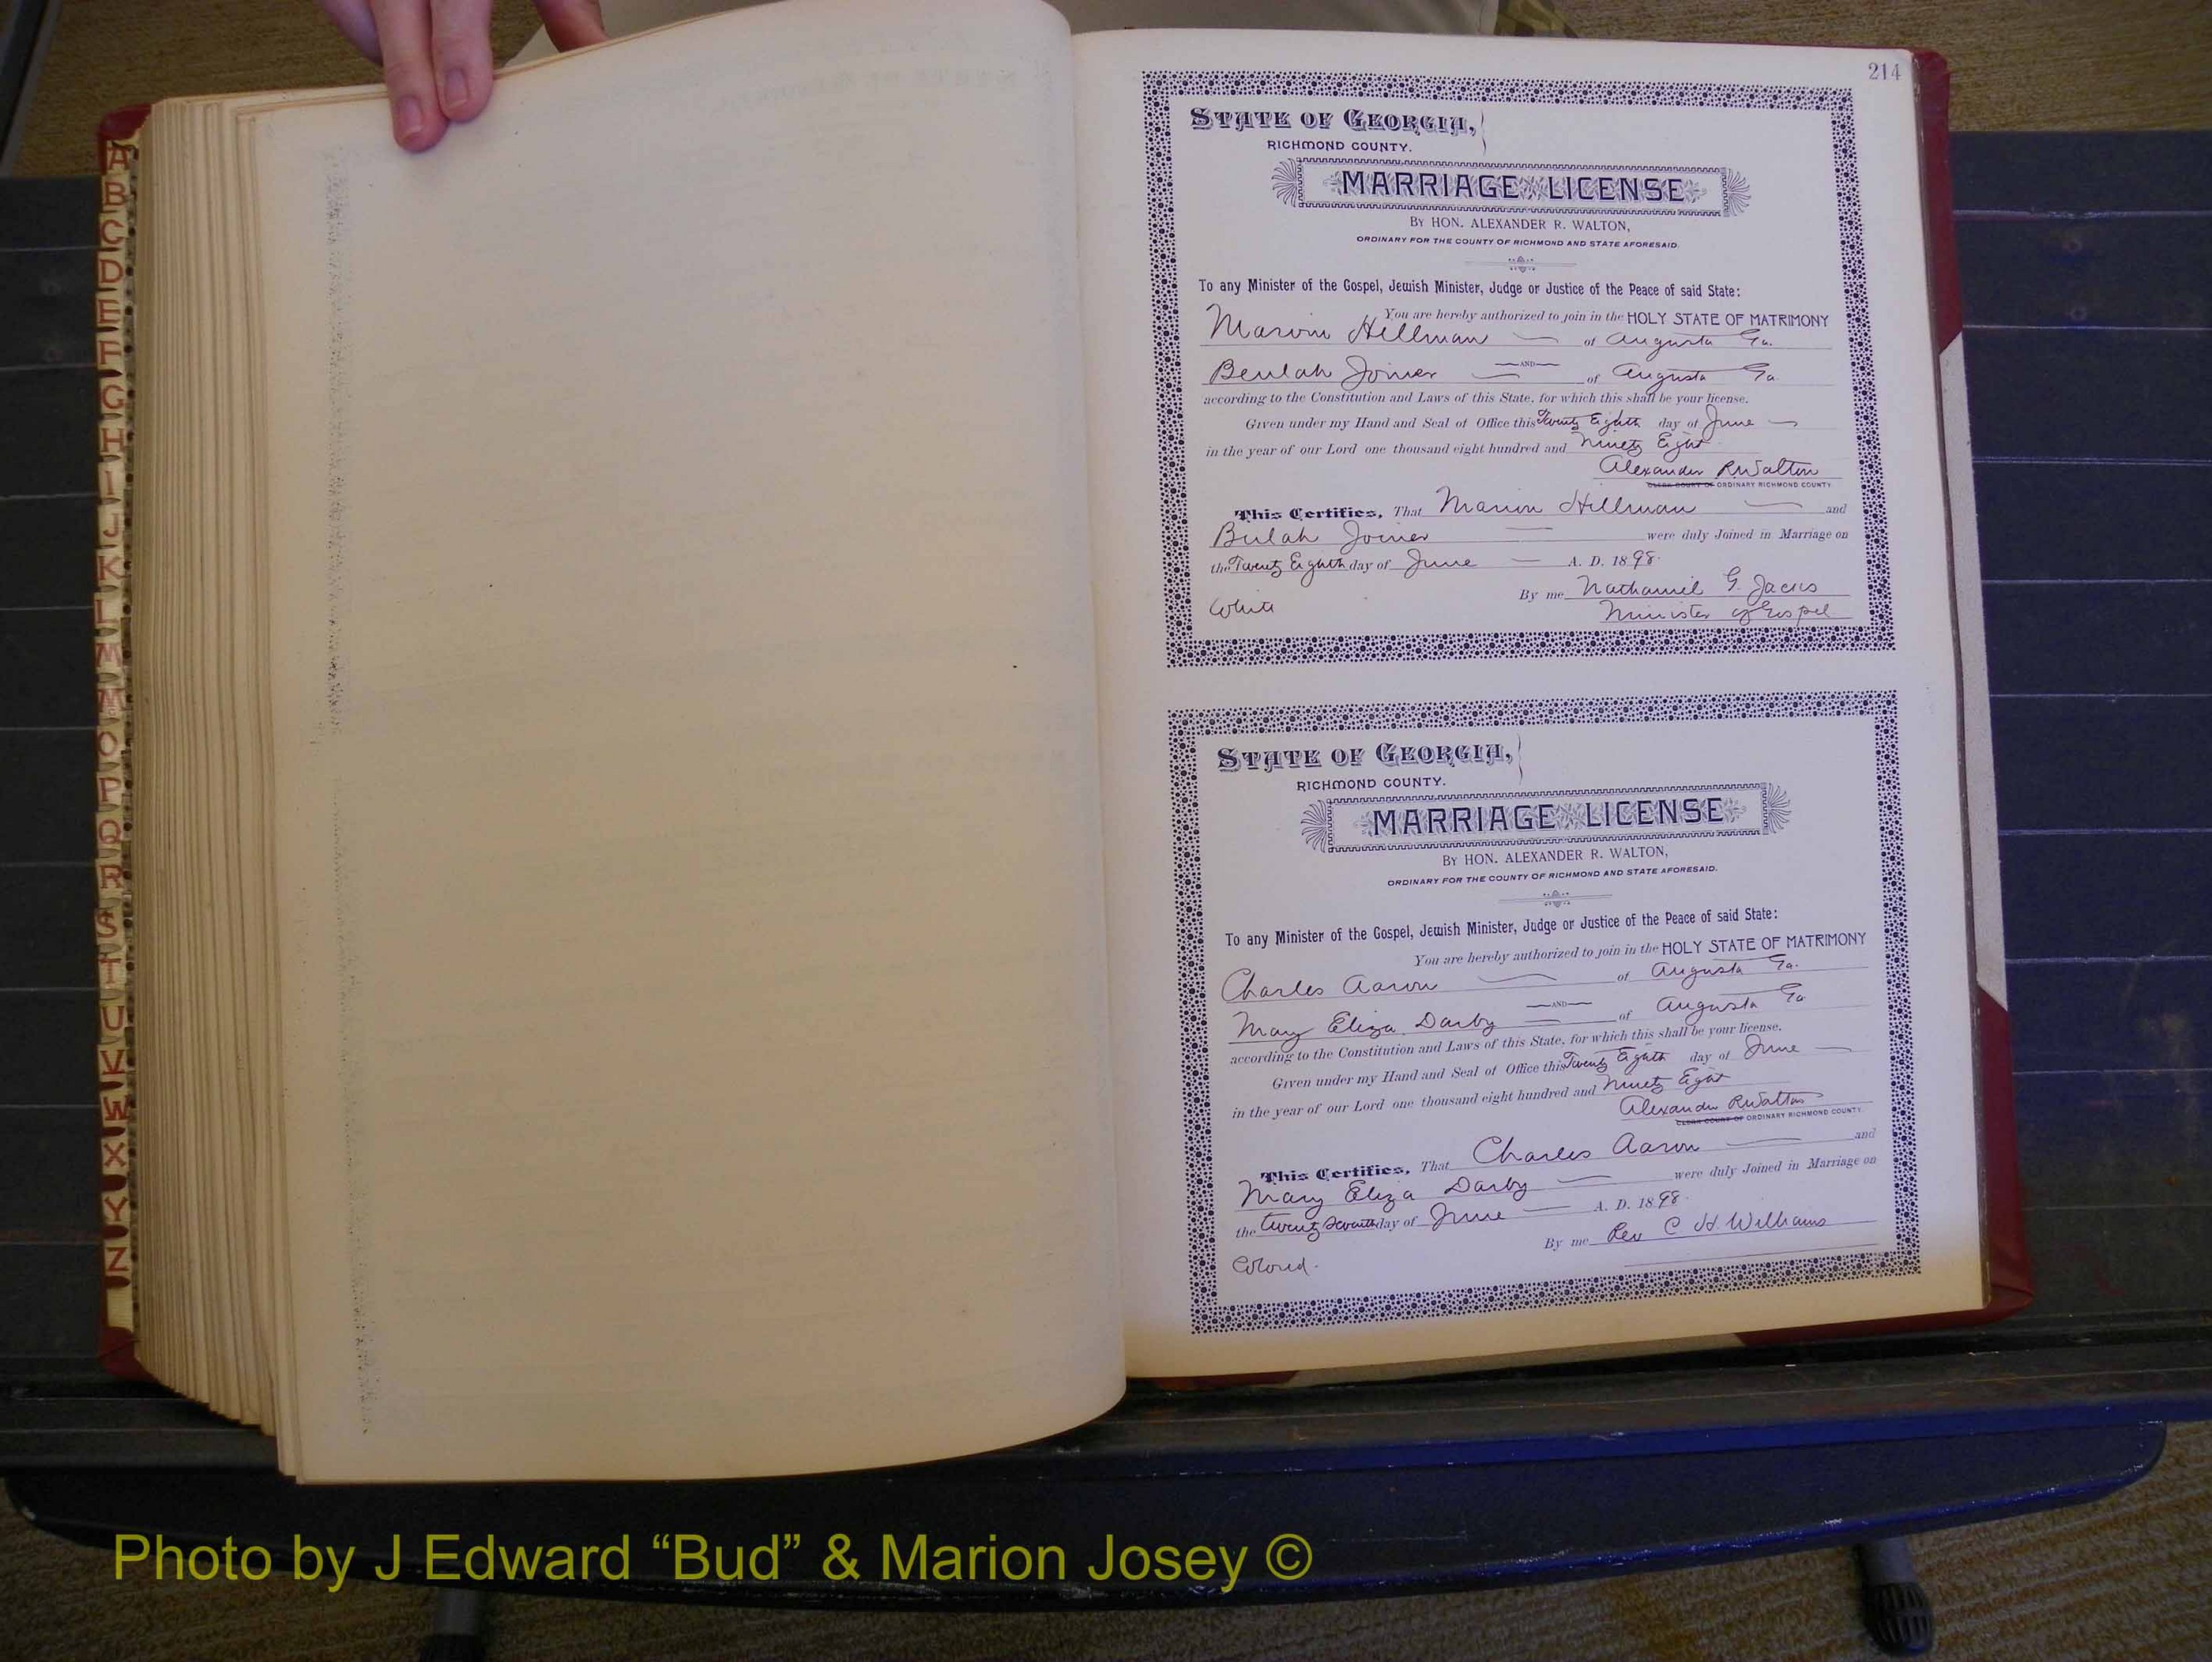 A
B
C
D
E
F
G
H
I
J
K
L
M
M
O
P
Q
R
S
T
U
V
W
X
Y
Z
214
STATE OF GEORGIA,
RICHMOND COUNTY.
MARRIAGE LICENSE
BY HON. ALEXANDER R. WALTON,
ORDINARY FOR THE COUNTY OF RICHMOND AND STATE AFORESAID.
To any Minister of the Gospel, Jewish Minister, Judge or Justice of the Peace of said State:
You are hereby authorized to join in the HOLY STATE OF MATRIMONY
Hillman of Augusta Ga.
AND
Beulah Joiner of Augusta Ga.
according to the Constitution and Laws of this State, for which this shall be your license.
Given under my Hand and Seal of Office this Twenty Eighth day of June
in the year of our Lord one thousand eight hundred and Ninety Eight
Alexander R Walton
CLERK COURT OF ORDINARY RICHMOND COUNTY
This Certifies, That Hillman and
Beulah Joiner were duly Joined in Marriage on
the Twenty Eighth day of June A. D. 1898.
By me Nathaniel G.
White Minister of Gospel
STATE OF GEORGIA,
RICHMOND COUNTY.
MARRIAGE LICENSE
BY HON. ALEXANDER R. WALTON,
ORDINARY FOR THE COUNTY OF RICHMOND AND STATE AFORESAID.
To any Minister of the Gospel, Jewish Minister, Judge or Justice of the Peace of said State:
You are hereby authorized to join in the HOLY STATE OF MATRIMONY
Charles Aaron of Augusta Ga.
AND
Mary Eliza Darby of Augusta Ga
according to the Constitution and Laws of this State, for which this shall be your license.
Given under my Hand and Seal of Office this Twenty Eighth day of June
in the year of our Lord one thousand eight hundred and Ninety Eight
Alexander R Walton
CLERK COURT OF ORDINARY RICHMOND COUNTY
This Certifies, That Charles Aaron and
Mary Eliza Darby were duly Joined in Marriage on
the twenty Seventh day of June A. D. 1898.
By me Rev C. H. Williams
Colored.
Photo by J Edward “Bud” & Marion Josey ©